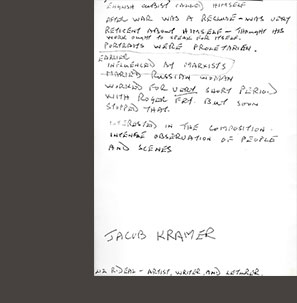 "ENGLISH CUBIST CALLED HIMSELF
AFTER WAR WAS A RECLUSE - WAS VERY
RETICENT ABOUT HIMSELF - THOUGHT HIS
WORK OUGHT TO SPEAK FOR ITSELF.
PORTRAITS WERE PROLETARIEN.
EARLIER
INFLUENCED BY MARXISTS
MARIED RUSSIAN WOMAN
WORKED FOR VERY SHORT PERIOD
WITH ROGER FRY BUT SOON
STOPPED THAT.
INTERESTED IN THE COMPOSITION.
INTENSE OBSERVATION OF PEOPLE
AND SCENES
JACOB KRAMER
RIDEAL - ARTIST, WRITER AND LECTURER.